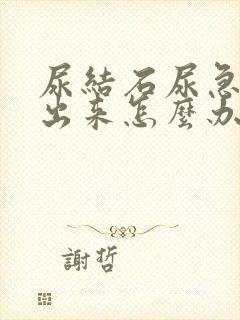 尿結石尿急
出来怎麼办
謝哲